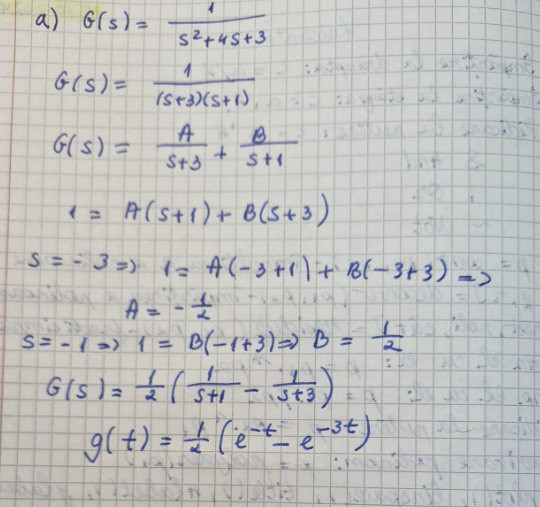 a) G(s) = 1 / (s²+4s+3)
G(s) = 1 / ((s+3)(s+1))
G(s) = A / (s+3) + B / (s+1)
1 = A(s+1) + B(s+3)
s = -3 => 1 = A(-3+1) + B(-3+3) =>
A = -1/2
s = -1 => 1 = B(-1+3) => B = 1/2
G(s) = 1/2 (1/(s+1) - 1/(s+3))
g(t) = 1/2 (e^-t - e^-3t)